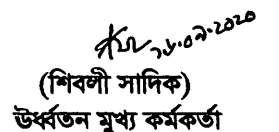 ২৮.০৯.২০২০
(শিবলী সাদিক)
ঊর্ধ্বতন মুখ্য কর্মকর্তা